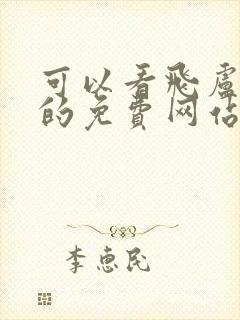 可以看飛盧
的免費网站
李惠民